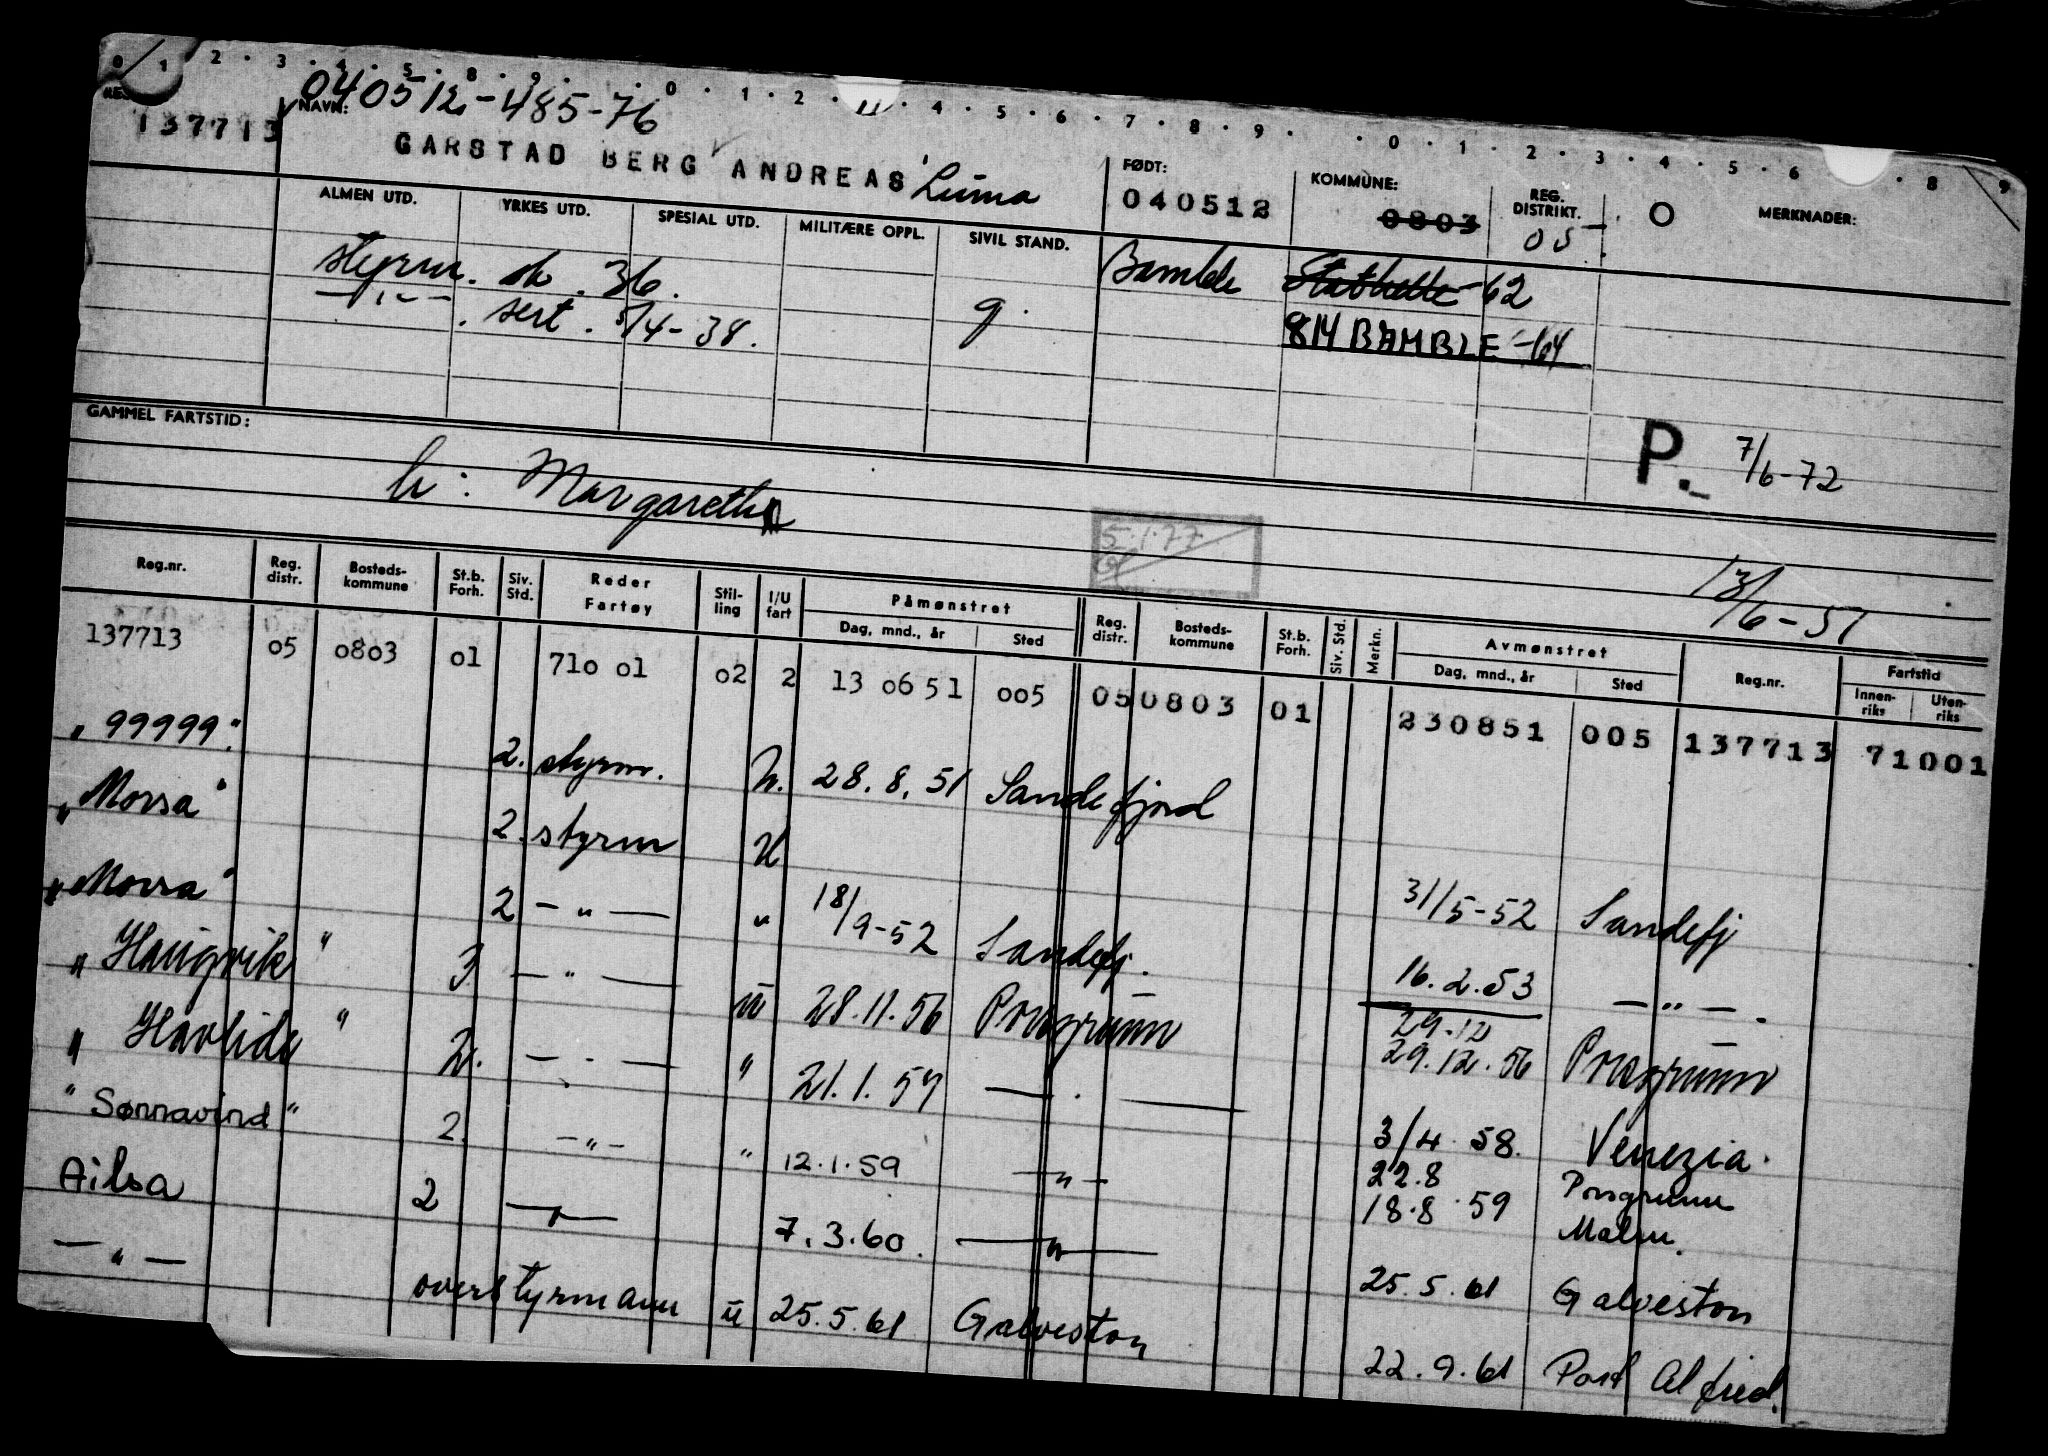 0 1 2 · 3 · 4 · 5 · 8 · 9 · · 0 · 1 · 2 · · 4 · 5 · 6 · 7 · 8 · 9 · · 0 · 1 · 2 · 3 · 4 · 5 · 6 · 8 · 9
137713 NAVN: 040512-485-76
GARSTAD BERG ANDREAS Luma FØDT: 040512 KOMMUNE: 0803 REG. DISTRIKT. 05 O MERKNADER:
ALMEN UTD. YRKES UTD. SPESIAL UTD. MILITÆRE OPPL. SIVIL STAND.
styrm. sk. 36. Bamble Stathelle -62
—"— sert. 5/4-38. g. 814 BAMBLE -64
GAMMEL FARTSTID:
P. 7/6-72
h: Margaretha
5.1.77
13/6-51
Reg.nr. Reg. distr. Bosteds- kommune St.b. Forh. Siv. Std. Reder Fartøy Stil- ling I/U fart Påmønstret Dag, mnd., år Sted Reg. distr. Bosteds- kommune St.b. Forh. Siv. Std. Merkn. Avmønstret Dag, mnd., år Sted Reg.nr. Fartstid Innen- riks Uten- riks
137713 05 0803 01 710 01 02 2 13 06 51 005 05 0803 01 230851 005 137713 71001
"99999" 2. styrm. U. 28.8.51 Sandefjord
"Morsa" 2. styrm U 31/5-52 Sandefj
"Morsa" 2 —"— " 18/9-52 Sandefj. 16.2.53 —"—.
"Haugvik" 3 —"— U 28.11.56 Porsgrunn 29.12 29.12.56 Porsgrunn
"Havlide" 2. —"— " 21.1.57 —"— 3/4 58. Venezia.
"Sønnavind" 2. —"— " 12.1.59 —"— 22.8 Porsgrunn 18.8.59 Malm.
Ailsa 2 —"— 7.3.60. —"— 25.5.61 Galveston
—"— overstyrmann U 25.5.61 Galveston 22.9.61 Port Alfred.